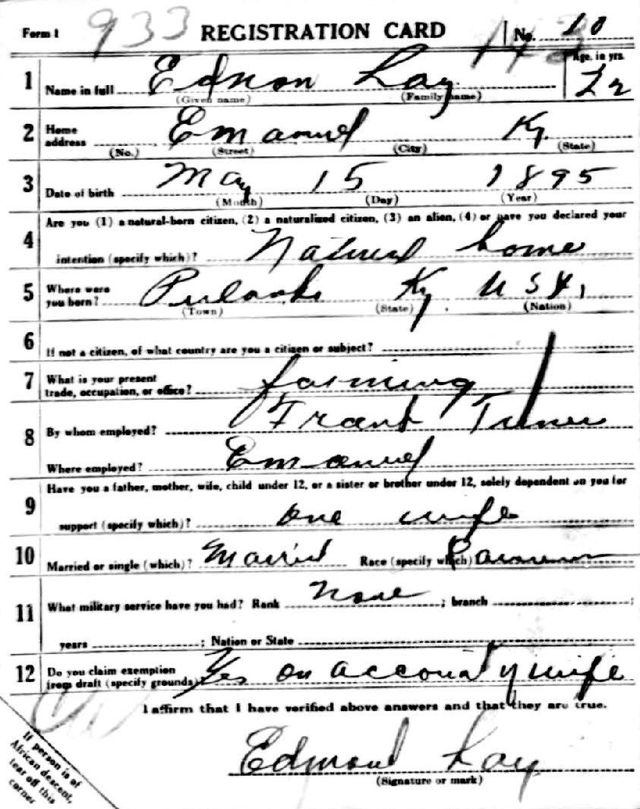 Form 1 933 REGISTRATION CARD No. 10
Age, in yrs.
1 Name in full Edmon Lay 22
(Given name) (Family name)
2 Home address Emanuel Ky.
(No.) (Street) (City) (State)
3 Date of birth May 15 1895
(Month) (Day) (Year)
4 Are you (1) a natural-born citizen, (2) a naturalized citizen, (3) an alien, (4) or have you declared your
intention (specify which)? Natural borne
5 Where were you born? Pulaski Ky USA,
(Town) (State) (Nation)
6 If not a citizen, of what country are you a citizen or subject?
7 What is your present trade, occupation, or office? farming
8 By whom employed? Frank Turner
Where employed? Emanuel
9 Have you a father, mother, wife, child under 12, or a sister or brother under 12, solely dependent on you for
support (specify which)? one wife
10 Married or single (which)? Married Race (specify which)
11 What military service have you had? Rank None ; branch ;
years ; Nation or State
12 Do you claim exemption from draft (specify grounds) Yes on account of wife
I affirm that I have verified above answers and that they are true.
Edmond Lay
(Signature or mark)
If person is of
African descent,
tear off this
corner